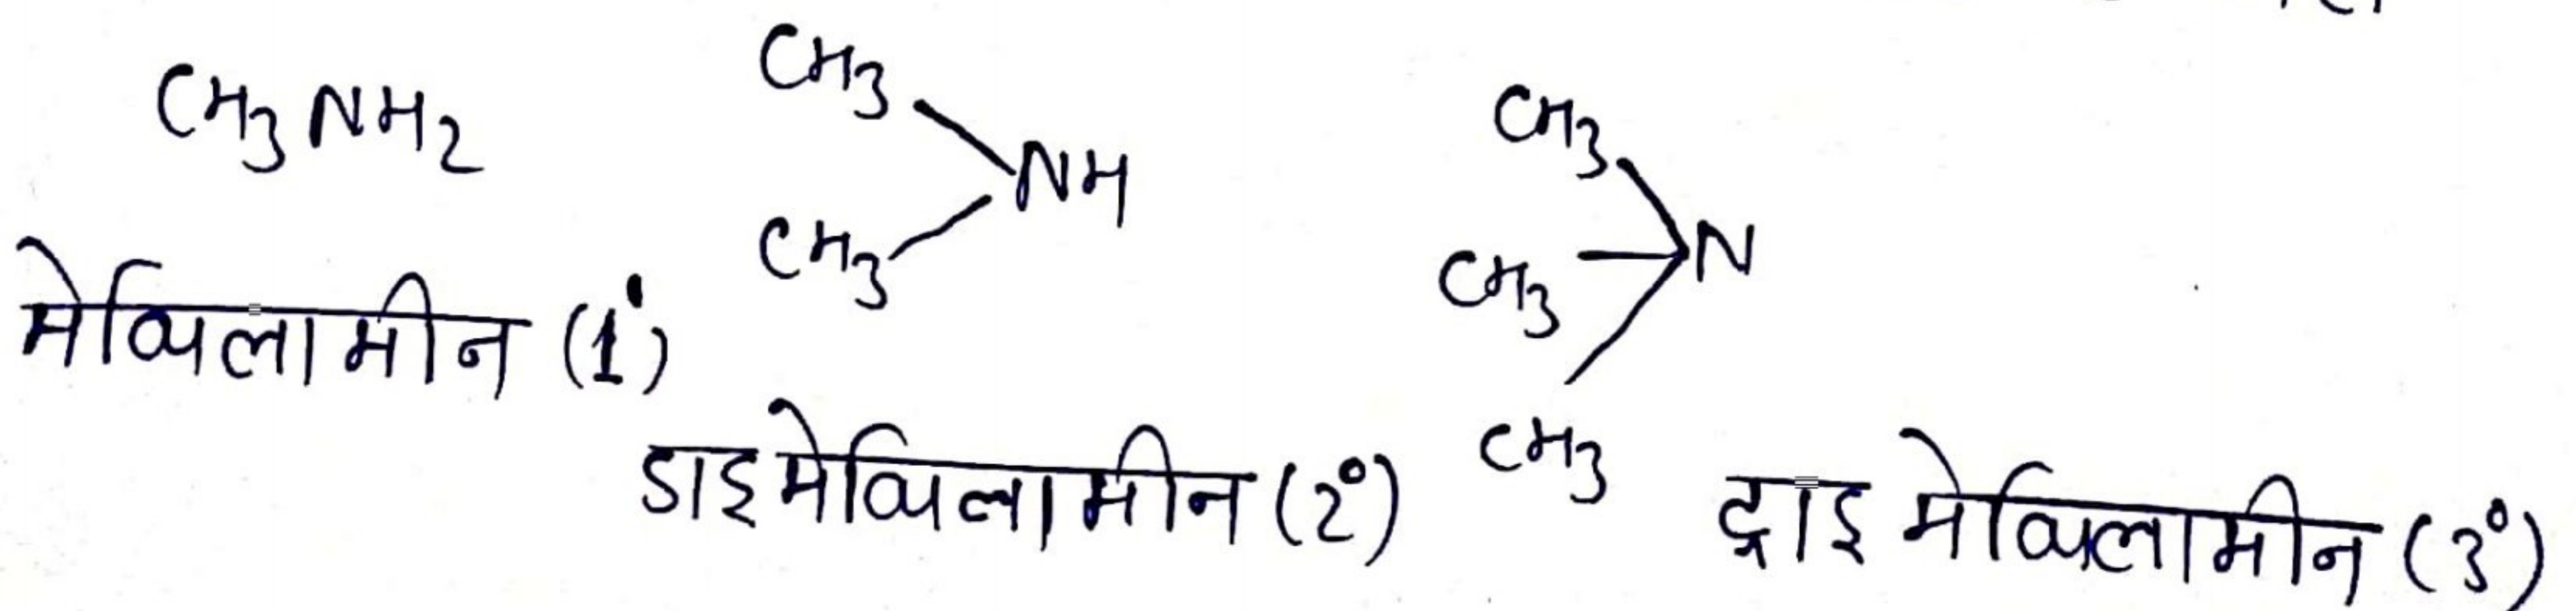 CH3NH2
मेथिलामीन (1°)
CH3
CH3
NH
डाइमेथिलामीन (2°)
CH3
CH3
CH3
N
ट्राइ मेथिलामीन (3°)